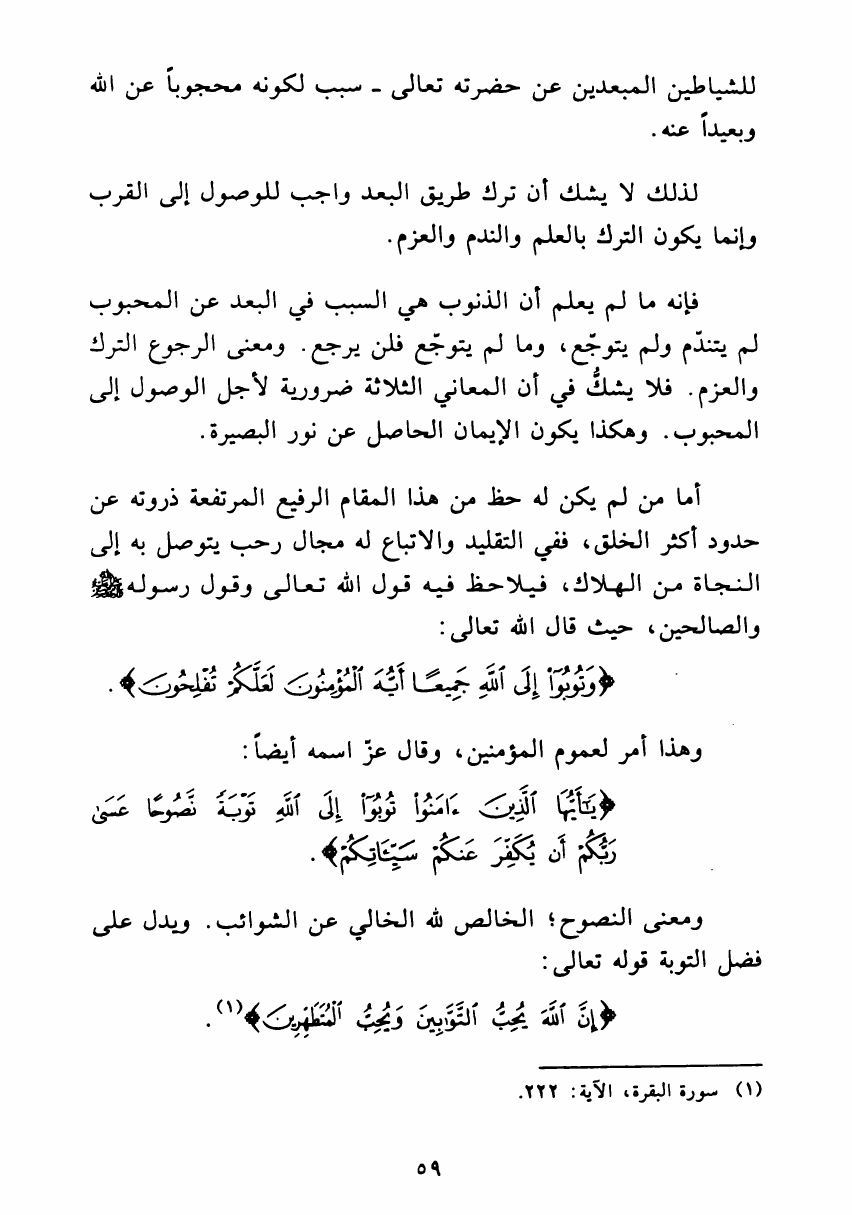 للشياطين المبعدين عن حضرته تعالى - سبب لكونه محجوباً عن الله
وبعيداً عنه.
لذلك لا يشك أن ترك طريق البعد واجب للوصول إلى القرب
وإنما يكون الترك بالعلم والندم والعزم.
فإنه ما لم يعلم أن الذنوب هي السبب في البعد عن المحبوب
لم يتندّم ولم يتوجّع، وما لم يتوجّع فلن يرجع. ومعنى الرجوع الترك
والعزم. فلا يشكُّ في أن المعاني الثلاثة ضرورية لأجل الوصول إلى
المحبوب. وهكذا يكون الإيمان الحاصل عن نور البصيرة.
أما من لم يكن له حظ من هذا المقام الرفيع المرتفعة ذروته عن
حدود أكثر الخلق، ففي التقليد والاتباع له مجال رحب يتوصل به إلى
النجاة من الهلاك، فيلاحظ فيه قول الله تعالى وقول رسوله ﷺ
والصالحين، حيث قال الله تعالى:
﴿وَتُوبُوٓا۟ إِلَى ٱللَّهِ جَمِيعًا أَيُّهَ ٱلْمُؤْمِنُونَ لَعَلَّكُمْ تُفْلِحُونَ﴾.
وهذا أمر لعموم المؤمنين، وقال عزّ اسمه أيضاً:
﴿يَٰٓأَيُّهَا ٱلَّذِينَ ءَامَنُوا۟ تُوبُوٓا۟ إِلَى ٱللَّهِ تَوْبَةً نَّصُوحًا عَسَىٰ
رَبُّكُمْ أَن يُكَفِّرَ عَنكُمْ سَيِّـَٔاتِكُمْ﴾.
ومعنى النصوح؛ الخالص لله الخالي عن الشوائب. ويدل على
فضل التوبة قوله تعالى:
﴿إِنَّ ٱللَّهَ يُحِبُّ ٱلتَّوَّٰبِينَ وَيُحِبُّ ٱلْمُتَطَهِّرِينَ﴾(١).
(١) سورة البقرة، الآية: ٢٢٢.
٥٩